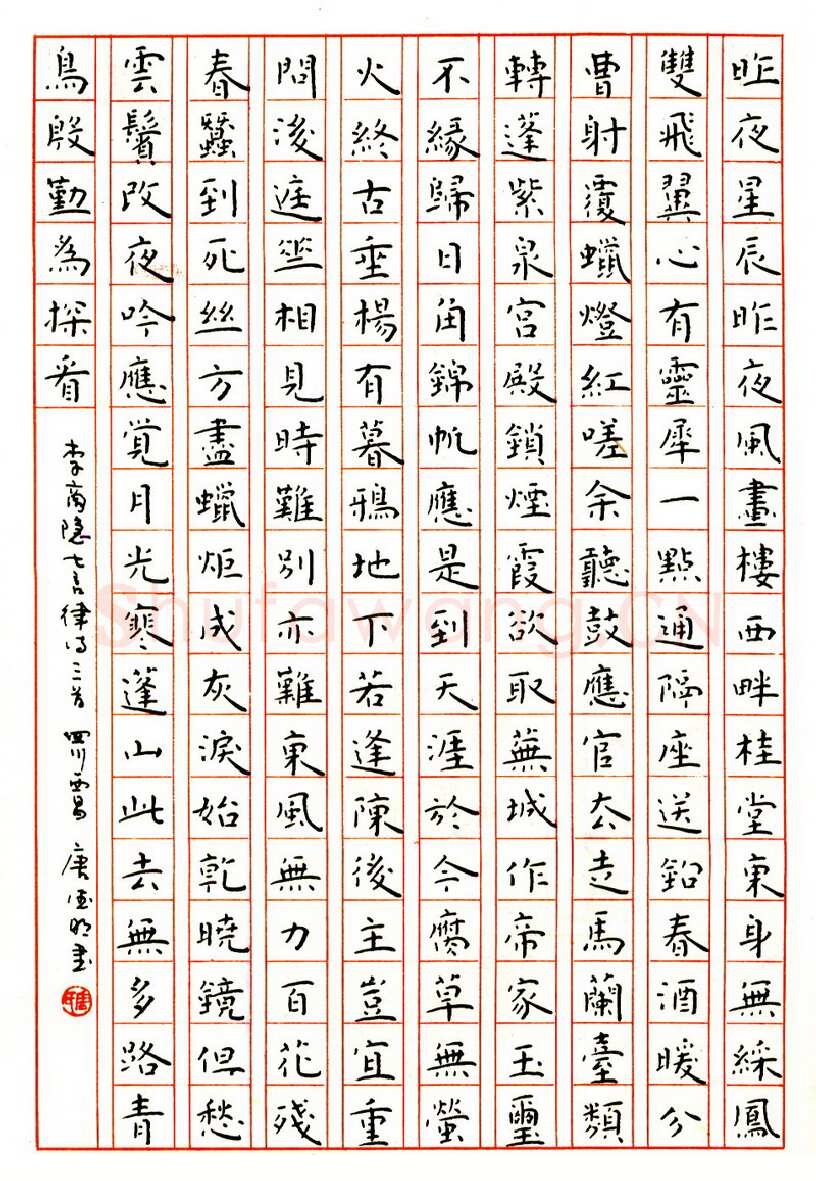 昨夜星辰昨夜風畫樓西畔桂堂東身無綵鳳
雙飛翼心有靈犀一點通隔座送鉤春酒暖分
曹射覆蠟燈紅嗟余聽鼓應官去走馬蘭臺類
轉蓬紫泉宮殿鎖煙霞欲取蕪城作帝家玉璽
不緣歸日角錦帆應是到天涯於今腐草無螢
火終古垂楊有暮鴉地下若逢陳後主豈宜重
問後庭花相見時難別亦難東風無力百花殘
春蠶到死絲方盡蠟炬成灰淚始乾曉鏡但愁
雲鬢改夜吟應覺月光寒蓬山此去無多路青
鳥殷勤為探看
李商隐七言律詩三首 四川西昌 唐德明書
Shufawang.CN